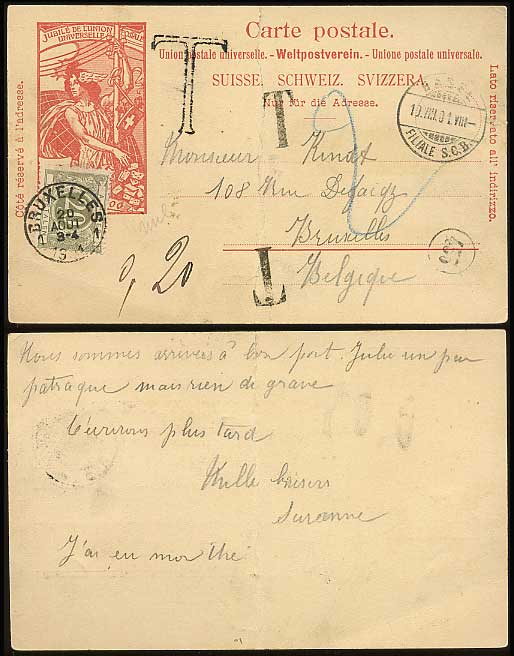 JUBILÉ DE L'UNION POSTALE
UNIVERSELLE
Carte postale.
Union postale universelle. - Weltpostverein. - Unione postale universale.
SUISSE. SCHWEIZ. SVIZZERA.
Nur für die Adresse.
Côté réservé à l'adresse.
Lato riservato all' indirizzo.
T
T
T
BASEL
10.VIII.01.VIII
FILIALE S.C.B.
Monsieur Kindt
108 Rue Defacqz
Bruxelles
Belgique
BRUXELLES
1 1
20
AOUT
3-4
0,20
Nous sommes arrivées à bon port. Julie un peu
patraque mais rien de grave
J'écrirons plus tard
Mille baisers
Suzanne
J'ai eu mon thé